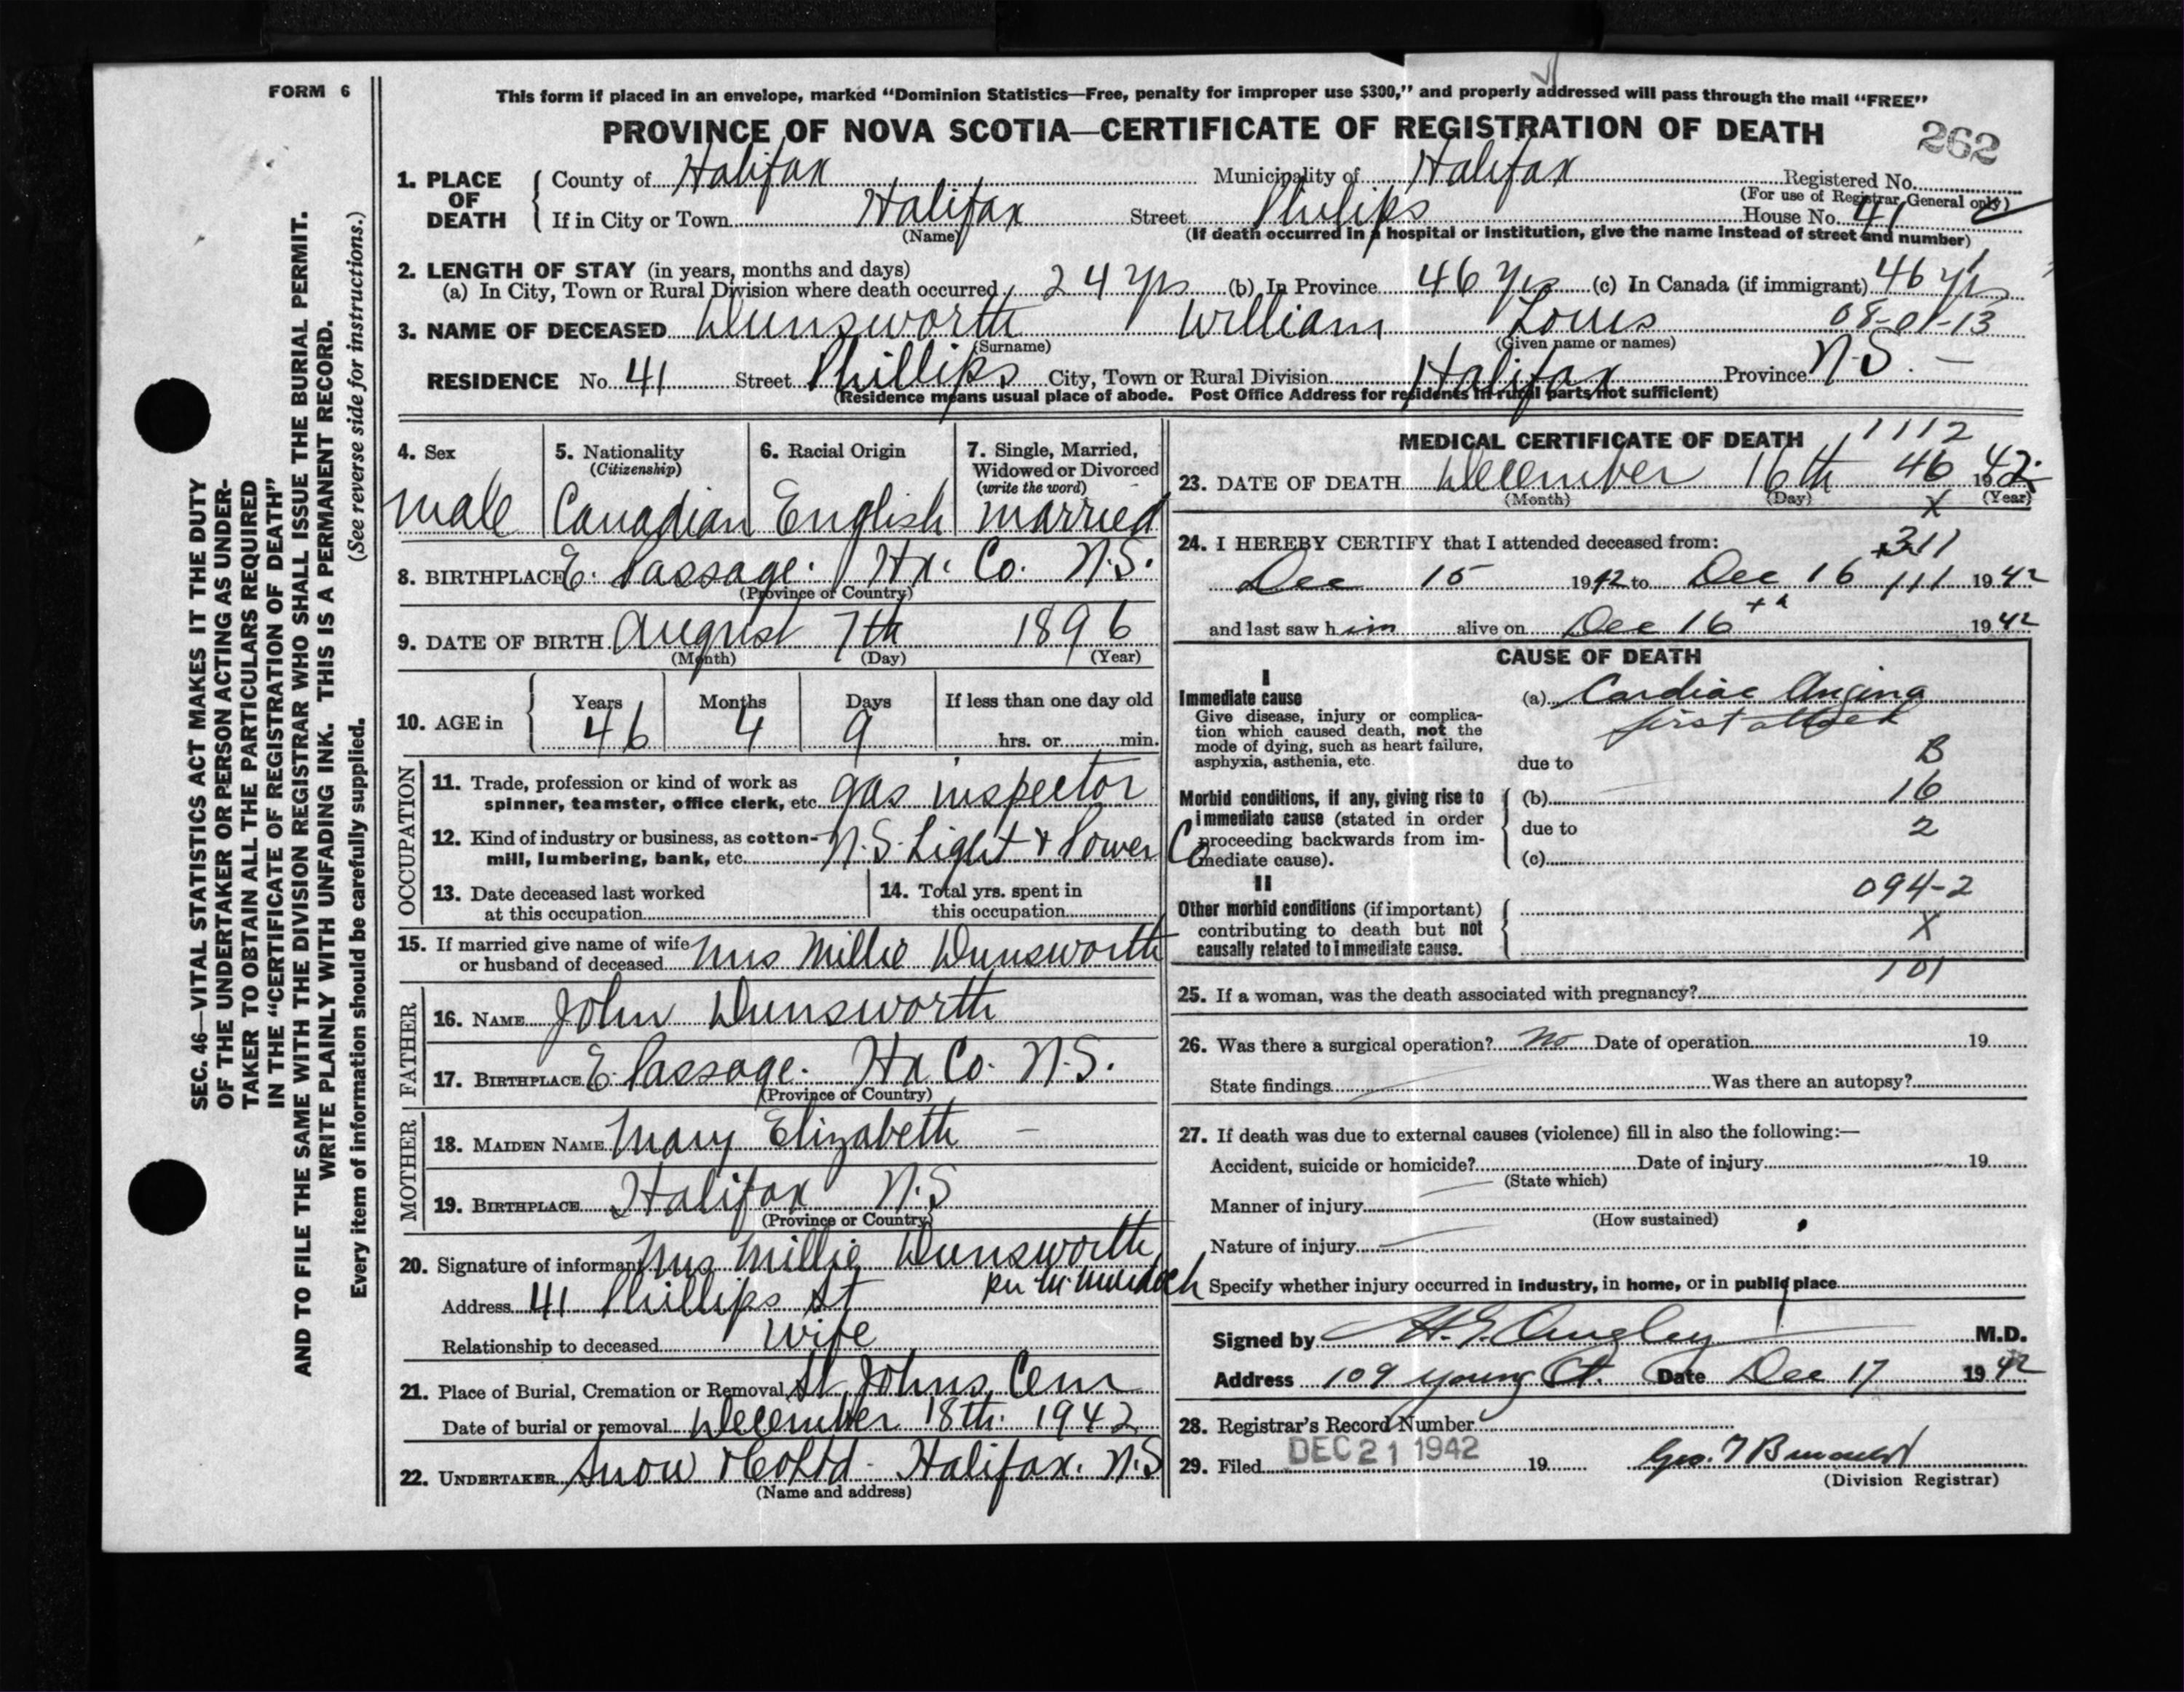 FORM 6
This form if placed in an envelope, marked "Dominion Statistics—Free, penalty for improper use $300," and properly addressed will pass through the mail "FREE"
PROVINCE OF NOVA SCOTIA—CERTIFICATE OF REGISTRATION OF DEATH
262
1. PLACE OF DEATH County of Halifax Municipality of Halifax Registered No.
(For use of Registrar General only)
If in City or Town Halifax Street Philips House No. 41
(Name) (If death occurred in a hospital or institution, give the name instead of street and number)
2. LENGTH OF STAY (in years, months and days)
(a) In City, Town or Rural Division where death occurred 24 yrs (b) In Province 46 yrs (c) In Canada (if immigrant) 46 yrs
3. NAME OF DECEASED Dunsworth William Louis 08-01-13
(Surname) (Given name or names)
RESIDENCE No. 41 Street Phillips City, Town or Rural Division Halifax Province N.S. —
(Residence means usual place of abode. Post Office Address for residents in rural parts not sufficient)
4. Sex
male
5. Nationality
(Citizenship)
Canadian
6. Racial Origin
English
7. Single, Married,
Widowed or Divorced
(write the word)
married
8. BIRTHPLACE E. Passage. Hx. Co. N.S.
(Province or Country)
9. DATE OF BIRTH August 7th 1896
(Month) (Day) (Year)
10. AGE in
Years Months Days If less than one day old
46 4 9 hrs. or min.
OCCUPATION
11. Trade, profession or kind of work as
spinner, teamster, office clerk, etc. gas inspector
12. Kind of industry or business, as cotton-
mill, lumbering, bank, etc. N.S. Light & Power Co
13. Date deceased last worked
at this occupation
14. Total yrs. spent in
this occupation
15. If married give name of wife
or husband of deceased Mrs Millie Dunsworth
FATHER
16. NAME John Dunsworth
17. BIRTHPLACE E. Passage. Hx Co. N.S.
(Province or Country)
MOTHER
18. MAIDEN NAME Mary Elizabeth —
19. BIRTHPLACE Halifax N.S
(Province or Country)
20. Signature of informant Mrs Millie Dunsworth
Address 41 Phillips St
Relationship to deceased Wife
21. Place of Burial, Cremation or Removal St Johns Cem
Date of burial or removal December 18th. 1942
22. UNDERTAKER Snow & Co Ltd - Halifax. N.S
(Name and address)
MEDICAL CERTIFICATE OF DEATH
1112
23. DATE OF DEATH December 16th 46 1942
(Month) (Day) (Year)
X
24. I HEREBY CERTIFY that I attended deceased from:
311
Dec 15 1942 to Dec 16 111 1942
and last saw him alive on Dec 16th 1942
CAUSE OF DEATH
I
Immediate cause
Give disease, injury or complica-
tion which caused death, not the
mode of dying, such as heart failure,
asphyxia, asthenia, etc.
(a) Cardiac Angina
first attack
due to B
Morbid conditions, if any, giving rise to
immediate cause (stated in order
proceeding backwards from im-
mediate cause).
(b) 16
due to 2
(c)
II
Other morbid conditions (if important)
contributing to death but not
causally related to immediate cause.
094-2
X
101
25. If a woman, was the death associated with pregnancy?
26. Was there a surgical operation? No Date of operation 19
State findings Was there an autopsy?
27. If death was due to external causes (violence) fill in also the following:—
Accident, suicide or homicide? Date of injury 19
(State which)
Manner of injury
(How sustained)
Nature of injury
Specify whether injury occurred in industry, in home, or in public place
Signed by M.D.
Address 109 Young St. Date Dec 17 1942
28. Registrar's Record Number
29. Filed DEC 21 1942 19
(Division Registrar)
SEC. 46—VITAL STATISTICS ACT MAKES IT THE DUTY
OF THE UNDERTAKER OR PERSON ACTING AS UNDER-
TAKER TO OBTAIN ALL THE PARTICULARS REQUIRED
IN THE "CERTIFICATE OF REGISTRATION OF DEATH"
AND TO FILE THE SAME WITH THE DIVISION REGISTRAR WHO SHALL ISSUE THE BURIAL PERMIT.
WRITE PLAINLY WITH UNFADING INK. THIS IS A PERMANENT RECORD.
Every item of information should be carefully supplied. (See reverse side for instructions.)